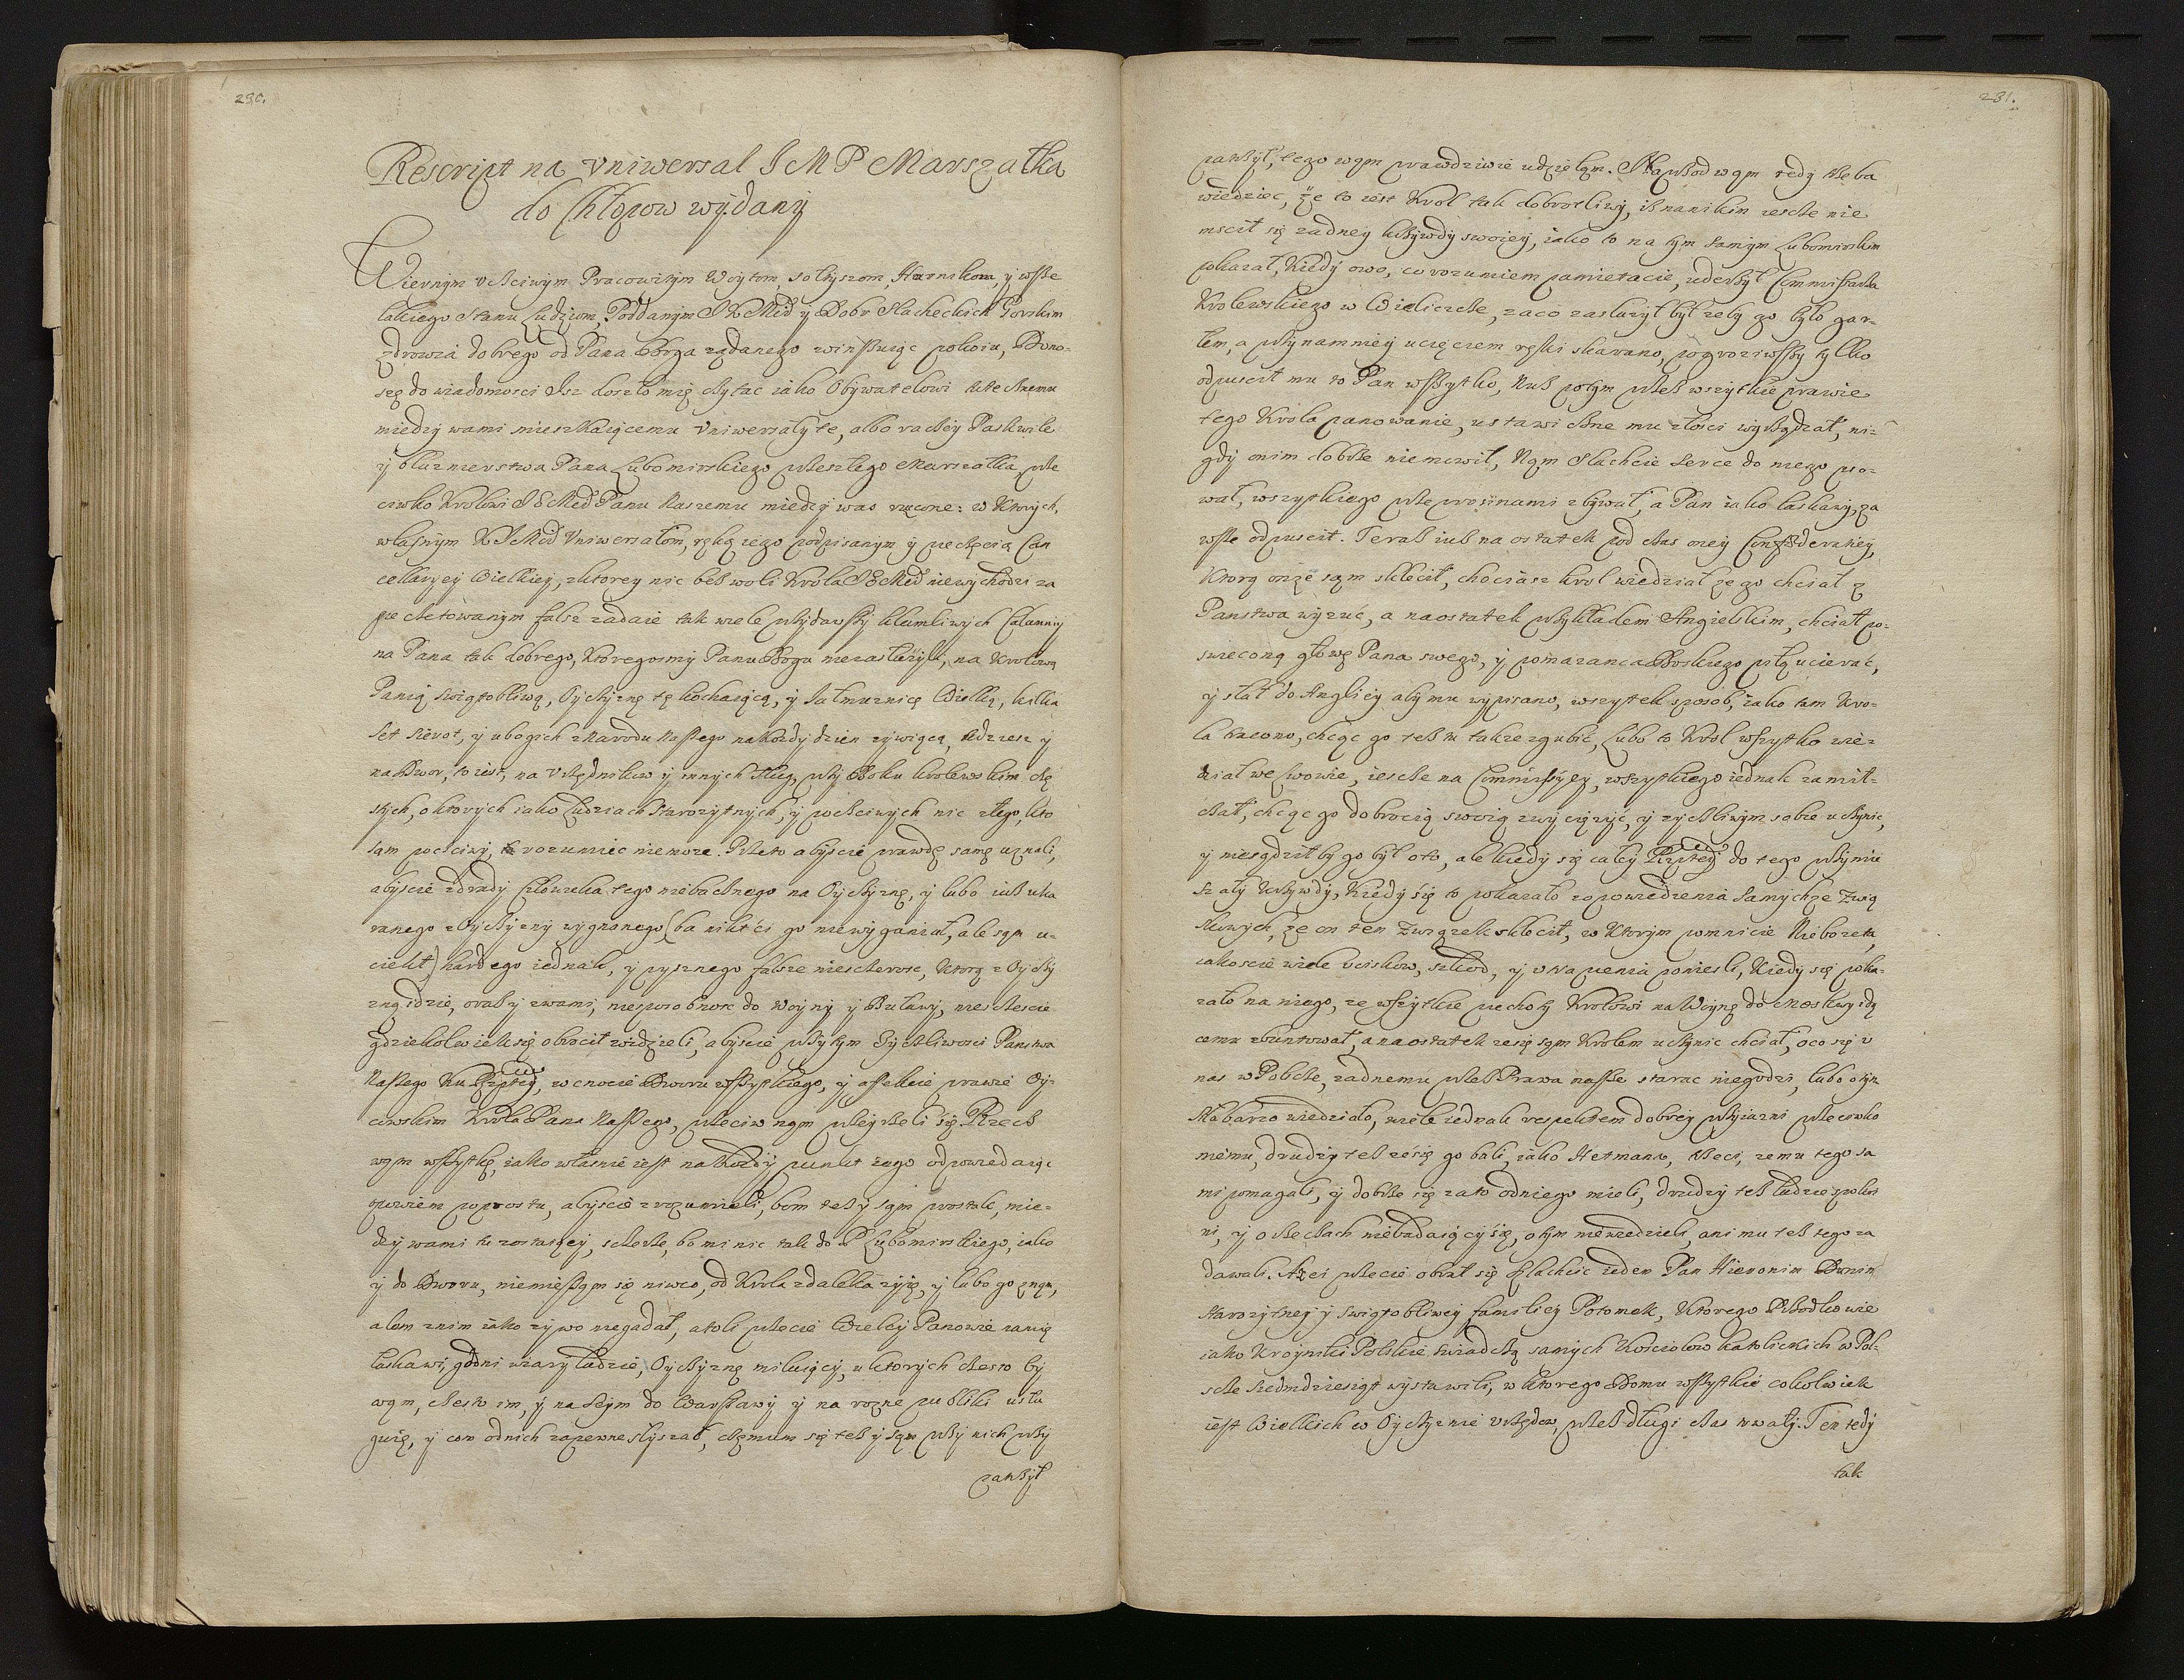 230.
Rescript na Vniwersal J M P Marszałka
do Chłopow wydany
Wiernym vcsciwym Pracowitym Woytom, sołtysom, Harnikom, y wsze
lakiego Stanu Ludziom, Poddanym JKMśd y Dobr Slacheckich Gorskim
zdrowia dobrego od Pana Boga rządanego winszuiąc pokoiu, Dono-
szę do wiadomosci Isz doszło mię czytac iako Obywatelowi tutecznemu
miedzy wami mieszkaiącemu Vniwersały te, albo raczey Paskwile
y bluznierstwa Pana Lubomirskiego przeszłego Marszałka prze
ciwko Krolowi JEMśd Panu Naszemu miedzy was rzucone: w Ktorych,
własnym KJMśd Vniwersałom, ręką iego podpisanym y pieczęcią Can
cellaryey Wielkiey, z ktorey nic bez woli Krola JEMśd niewychodzi za
pieczetowanym falsz zadaie tak wiele przydawszy kłamliwych Calumniy
na Pana tak dobrego, Ktoregosmy Panu Bogu niezasłużyli, na Krolową
Panią swiątobliwą, Oyczyznę tę kochaiącą, y Jałmużnicę Wielką, kilka
set sierot, y ubogich z Narodu Naszego na każdy dzien zywiącą,
na Dwor, to iest, na Vrzędnikow y innych sług, przy Boku krolewskim
o ktorych iako Ludziach starozytnych, y poczciwych nic złego, kto
sam poczciwy, rozumiec niemoze. Przeto abyscie prawdę samę uznali,
abyscie zdrady Człowieka tego niebacznego na Oyczyznę, y lubo iusz uka
ranego z Oyczyzny wygnanego (ba nikt ci go niewyganiał, ale sąm u-
ciekł) hardego iednak, y pysznego falsze niesczerosc, Ktorą z Oyczy
zną idzie, oraz y z wami, niesposobnosc do Woyny y Buławy, niesczescie
gdziekolwiek się obrocił widzieli, abyscie przy tym Życzliwosci Panstwa
Naszego Ku Rzptey, w cnocie Dworu wszytkiego, y affekcie prawie Oy-
cowskim Krola Pana Naszego, przeciw wąm przeyrzeli się. Rzecz
wąm wszytkę, iako własnie iest na każdy punkt iego odpowiedaiąc
opowiem poprostu, abyscie zrozumieli, bom też y sąm prostak, mie-
dzy wami tu zostaiący, sczerze, bo mi nic tak do P Lubomirskiego, iako
y do Dworu, niemiesząm się niwco, od Krola zdaleka zyię, y lubo go znąm,
alem z nim iako zywo niegadał, atoli przecie Wielcy Panowie na mię
łaskawi, godni wiary ludzie, Oyczyznę miłuiący, u ktorych często by
wąm, często im, y na Seym do Warszawy y na rozne publiki usłu
guię, y com od nich zapewne słyszał, czemum się też y sąm przy nich przy
patrzył
231.
patrzył, tego wąm prawdziwie udzieląm. Naprzod wąm tedy trzeba
wiedziec, że to iest Krol tak dobrotliwy, isz na nikim iescze nie
mscił się zadney krzywdy swoiey, iako to na tym samym Lubomirskim
pokazał, Kiedy owo, co rozumiem pamietacie, uderzył Commissarza
Krolewskiego w Wieliczcze, za co zasłuzył był zeby go było gar-
łem, a przynamniey ucięciem ręki skarano, pogroziwszy tylko
odpuscił mu to Pan wszytko, Nusz potym przez wszytkie prawie
tego Krola panowanie, ustawiczne mu złosci wyrządzał, ni-
gdy o nim dobrze niemowił, Nąm Slachcie serce do niego pso-
wał, wszytkiego przeprosinami zbywał, a Pan iako łaskawy, za
wsze odpuscił. Teraz iusz na ostatek pod czas oney Confoederatiey,
Ktorą onże sąm sklecił, chociasz krol wiedział że go chciał z
Panstwa wyzuć, a na ostatek przykładem Angielskim, chciał po-
swieconą głowę Pana swego, y pomazanca Boskiego piłą ucierać,
y słał do Angliey aby mu wypisano, wszytek sposob, iako tam Kro-
la tracono, chcąc go tesz tu takze zgubić, Lubo to Krol wszytko wie-
dział we Lwowie, iescze na Commissyey, wszytkiego iednak zamil-
czał, chcąc go dobrocią swoią zwyciężyć, y zyczliwym sobie uczynic,
y niesądził by go był oto, ale kiedy się całey Rzptey do tego przymie
szały Krzywdy, Kiedy się to pokazało z opowiedzenia samychże Zwią
skowych, że on ten Zwiąsek sklecił, w Ktorym pomnicie Niebozęta,
iakoscie wiele uciskow, szkod, y utrapienia poniesli, Kiedy się poka-
zało na niego, ze wszytkie piechoty Krolowi na Woynę do Moskwy idą
cemu zbuntował, a na ostatek ze się sąm Krolem uczynic chciał, o co się v
nas w Polscze, zadnemu przez Prawa nasze starac niegodzi, lubo o tym
Slabarzo wiedziało, wiele iednak respektem dobrey przyiazni przeciwko
niemu, drudzy tesz ze się go bali, iako Hetmana, trzeci, zemu tego sa
mi pomagali, y dobrze się za to od niego mieli, drudzy tesz ludzie spokoi
ni, y o rzeczach niebadaiący się, o tym niewiedzieli, ani mu tesz tego za
dawali. Azci przecie obrał się Slachcic ieden Pan Hieronim Dunin
starozytney y swiątobliwey familiey Potomek, Ktorego Przodkowie
iako Kroyniki Polskie swiadczą samych Kosciołow Katolickich w Pol-
scze siedmdziesiąt wystawili, w ktorego Domu wszytkie cokolwiek
iest Wielkich w Oyczyznie vrzędow, przez długi czas trwały. Ten tedy
tak